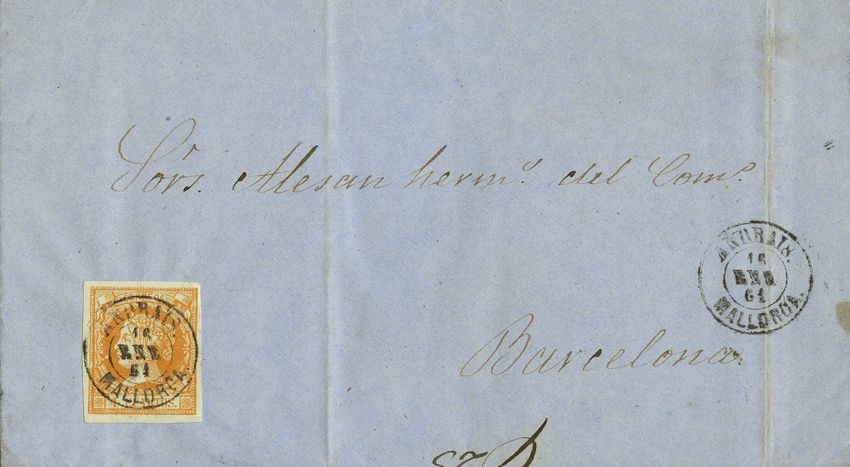 Sõrs. Alesan hermº. del Comº.
ANDRAIX.
16
ENE
61
MALLORCA.
ANDRAIX.
16
ENE
61
MALLORCA.
Barcelona.